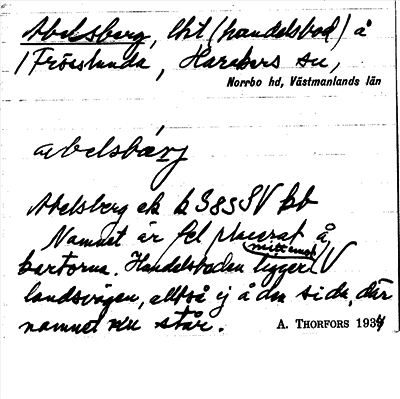 Abelsberg, lht (handelsbod) å
/ Fröslunda, Harakers sn,
Norrbo hd, Västmanlands län
abelsbærj
Abelsberg ek b S85SV bb
Namnet är fel placerat å
kartorna. Handelsboden ligger V
mittemot
landsvägen, alltså ej å den sida, där
namnet nu står.
A. THORFORS 1934